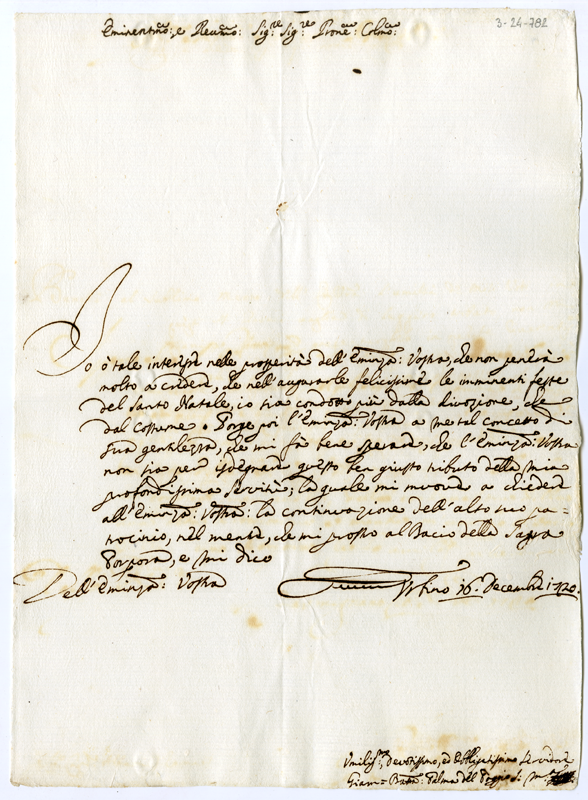 3-24-782
Eminentmo: e Revmo: Sigre Sigre Prone: Colmo:
Io ò tale interesse nelle prosperità dell'Eminza: Vostra, che non penerà
molto a credere, che nell'augurarle felicissime le imminenti feste
del Santo Natale, io sia condotto più dalla divozione, che
dal costume. Porge poi l'Eminza: Vostra a me tal concetto di
sua gentilezza, che mi fà bene sperare, che l'Eminza: Vostra
non sia per isdegnare questo ben giusto tributo della mia
profondissima servitù; la quale mi muove a chieder
all'Eminza: Vostra: la continuazione dell'alto suo pa=
trocinio, nel mentre, che mi prostro al Bacio della Sagra
Porpora, e mi dico
Dell'Eminza: Vostra
16. Decembre 1720.
Umiliss: Devotissimo, ed Obbligatissimo Servidore
Giam= Batta: Palma del